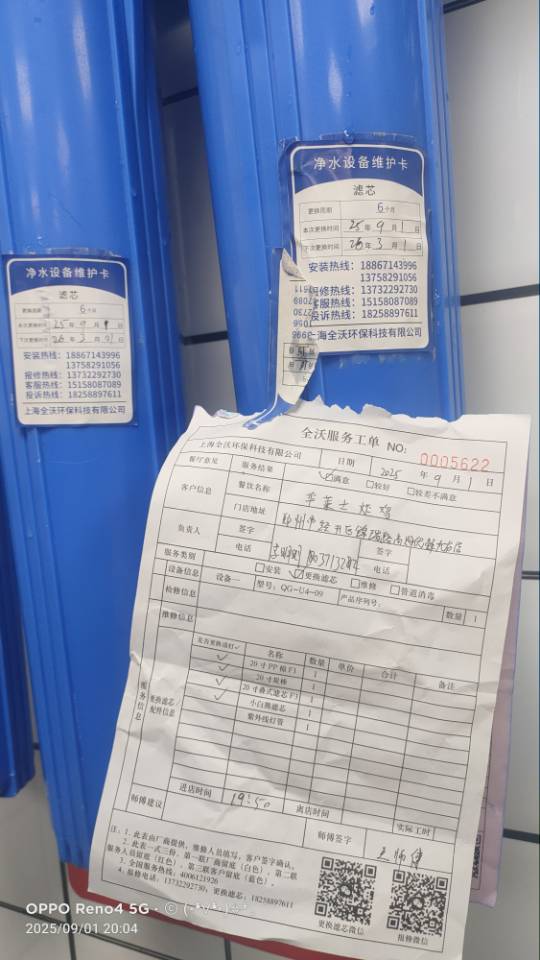 净水设备维护卡
滤芯
更换周期 6个月
本次更换时间 25年9月1日
下次更换时间 26年3月1日
安装热线：18867143996
13758291056
报修热线：13732292730
客服热线：15158087089
投诉热线：18258897611
上海全沃环保科技有限公司
净水设备维护卡
滤芯
更换周期 6个月
本次更换时间 25年9月1日
下次更换时间 26年3月1日
安装热线：18867143996
13758291056
报修热线：13732292730
客服热线：15158087089
投诉热线：18258897611
上海全沃环保科技有限公司
全沃服务工单 NO: 0005622
上海全沃环保科技有限公司 日期 2025年9月1日
餐厅意见 服务结果 ☑满意 □较好 □较差不满意
客户信息 餐饮名称 华莱士炸鸡
门店地址 郑州市经开区
负责人 签字 签字
电话 电话
服务类别 □安装 ☑更换滤芯 □维修 □管道消毒
设备信息 设备一 型号：QG-U4-09 产品序列号： 数量 1
检修信息
维修信息
服务信息 更换滤芯/配件信息
是否更换请打✓ 名称 数量 单价 合计 备注
✓ 20寸PP棉F1 1
✓ 20寸炭棒 1
✓ 20寸叠式滤芯F3 1
小白熊滤芯 1
紫外线灯管 1
进店时间 19:50 离店时间 实际工时
师傅建议 师傅签字
注：1. 此表由厂商提供，维修人员填写，客户签字确认。
2. 此表一式三份，第一联厂商留底（白色），第二联
服务人员留底（红色），第三联客户留底（蓝色）。
3. 全国服务热线：4006121926
4. 报修电话：13732292730，更换滤芯：18258897611
更换滤芯微信 报修微信
OPPO Reno4 5G · ©
2025/09/01 20:04